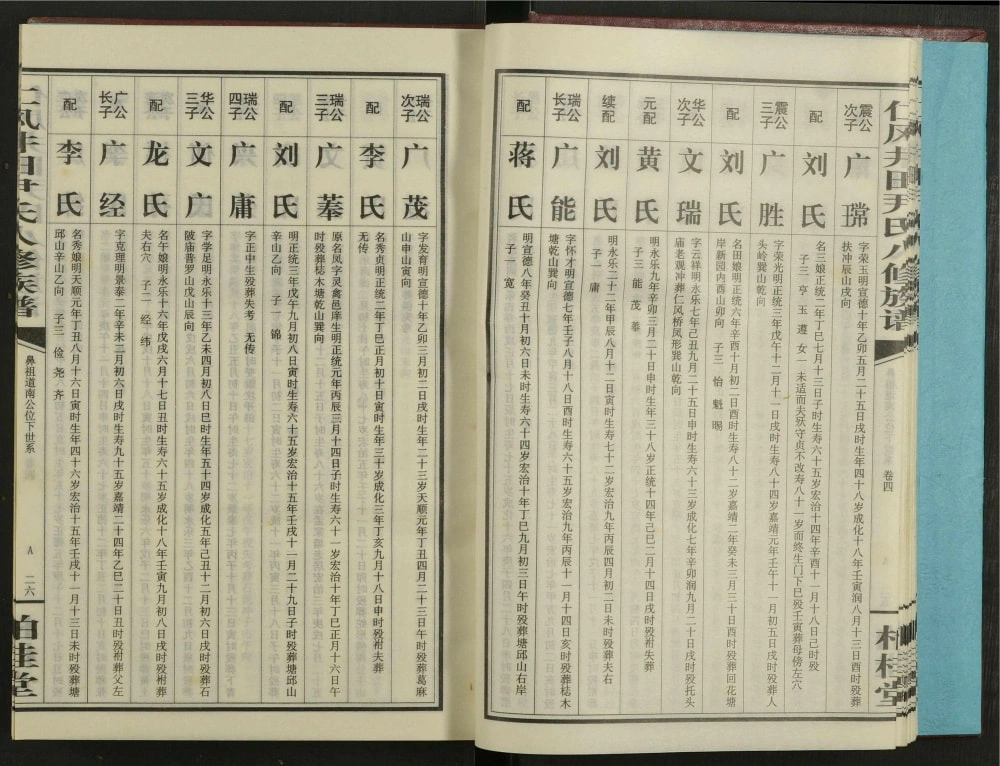 仁风井田尹氏八修族谱
卷四
柏桂堂
震公次子
广瑺
字荣玉明宣德十年乙卯五月二十五日戌时生年四十八岁成化十八年壬寅润八月十三日酉时殁葬
扶冲辰山戌向
配
刘氏
名三娘正统二年丁巳七月十三日子时生寿六十五岁宏治十四年辛酉十一月十八日己时殁
子三 亨 玉 遵 女一 未适而夫殀守贞不改寿八十一岁而终生门下巳殁壬寅葬母傍左穴
震公三子
广胜
字荣光明正统三年戊午十二月十一日戌时生寿八十四岁嘉靖元年壬午十一月初五日戌时殁葬人
头岭巽山乾向
配
刘氏
名田娘明正统六年辛酉十月初二日酉时生寿八十二岁嘉靖二年癸未三月三十日酉时殁葬回花塘
岸新园内酉山卯向 子三 怡 魁 赐
华公次子
文瑞
字云祥明永乐七年己丑九月二十五日申时生寿六十三岁成化七年辛卯润九月二十日戌时殁托头
庙老观冲葬仁风桥凤形巽山乾向
元配
黄氏
明永乐九年辛卯三月二十日申时生年三十八岁正统十四年己巳二月十四日戌时殁祔失葬
子三 能 茂 摹
续配
刘氏
明永乐二十二年甲辰八月十二日寅时生寿七十二岁宏治九年丙辰四月初二日未时殁葬夫右
子一 庸
瑞公长子
广能
字怀才明宣德七年壬子八月十八日酉时生寿六十五岁宏治九年丙辰十一月十四日亥时殁葬梽木
塘乾山巽向
配
蒋氏
明宣德八年癸丑十月初六日未时生寿六十四岁宏治十年丁巳九月初三日午时殁葬塘邱山右岸
子一 宽
瑞公次子
广茂
字发育明宣德十年乙卯三月初二日戌时生年二十三岁天顺元年丁丑四月二十三日午时殁葬葛麻
山申山寅向
配
李氏
名秀贞明正统二年丁巳正月初十日寅时生年三十岁成化三年丁亥九月十八日申时殁祔夫葬
无传
瑞公三子
广摹
原名凤字灵禽邑庠生明正统元年丙辰三月十四日子时生寿六十一岁宏治十年丁巳正月十六日午
时殁葬梽木塘乾山巽向
配
刘氏
明正统三年戊午九月初八日寅时生寿六十五岁宏治十五年壬戌十一月二十九日子时殁葬塘邱山
辛山乙向 子一 锦
瑞公四子
广庸
字正中生殁葬失考 无传
华公三子
文广
字学足明永乐十三年乙未四月初八日巳时生年五十四岁成化五年己丑十二月初六日戌时殁葬石
陂庙普罗山戌山辰向
配
龙氏
名午娘明永乐十六年戊戌六月十七日丑时生寿六十五岁成化十八年壬寅九月初八日戌时殁祔葬
夫右穴 子二 经 纬
广公长子
广经
字克理明景泰二年辛未二月初六日戌时生寿九十五岁嘉靖二十四年乙巳二十日丑时殁祔葬父左
配
李氏
名秀娘明天顺元年丁丑八月十六日寅时生年四十六岁宏治十五年壬戌十一月十三日未时殁葬塘
邱山辛山乙向 子三 俭 尧 齐
仁风井田尹氏八修族谱
鼻祖道南公位下世系
A 二六
柏桂堂